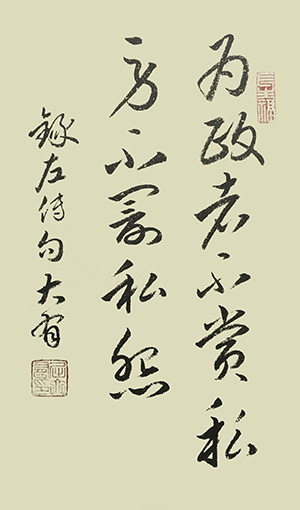 为政者不赏私
劳不罚私怨
録左传句大有